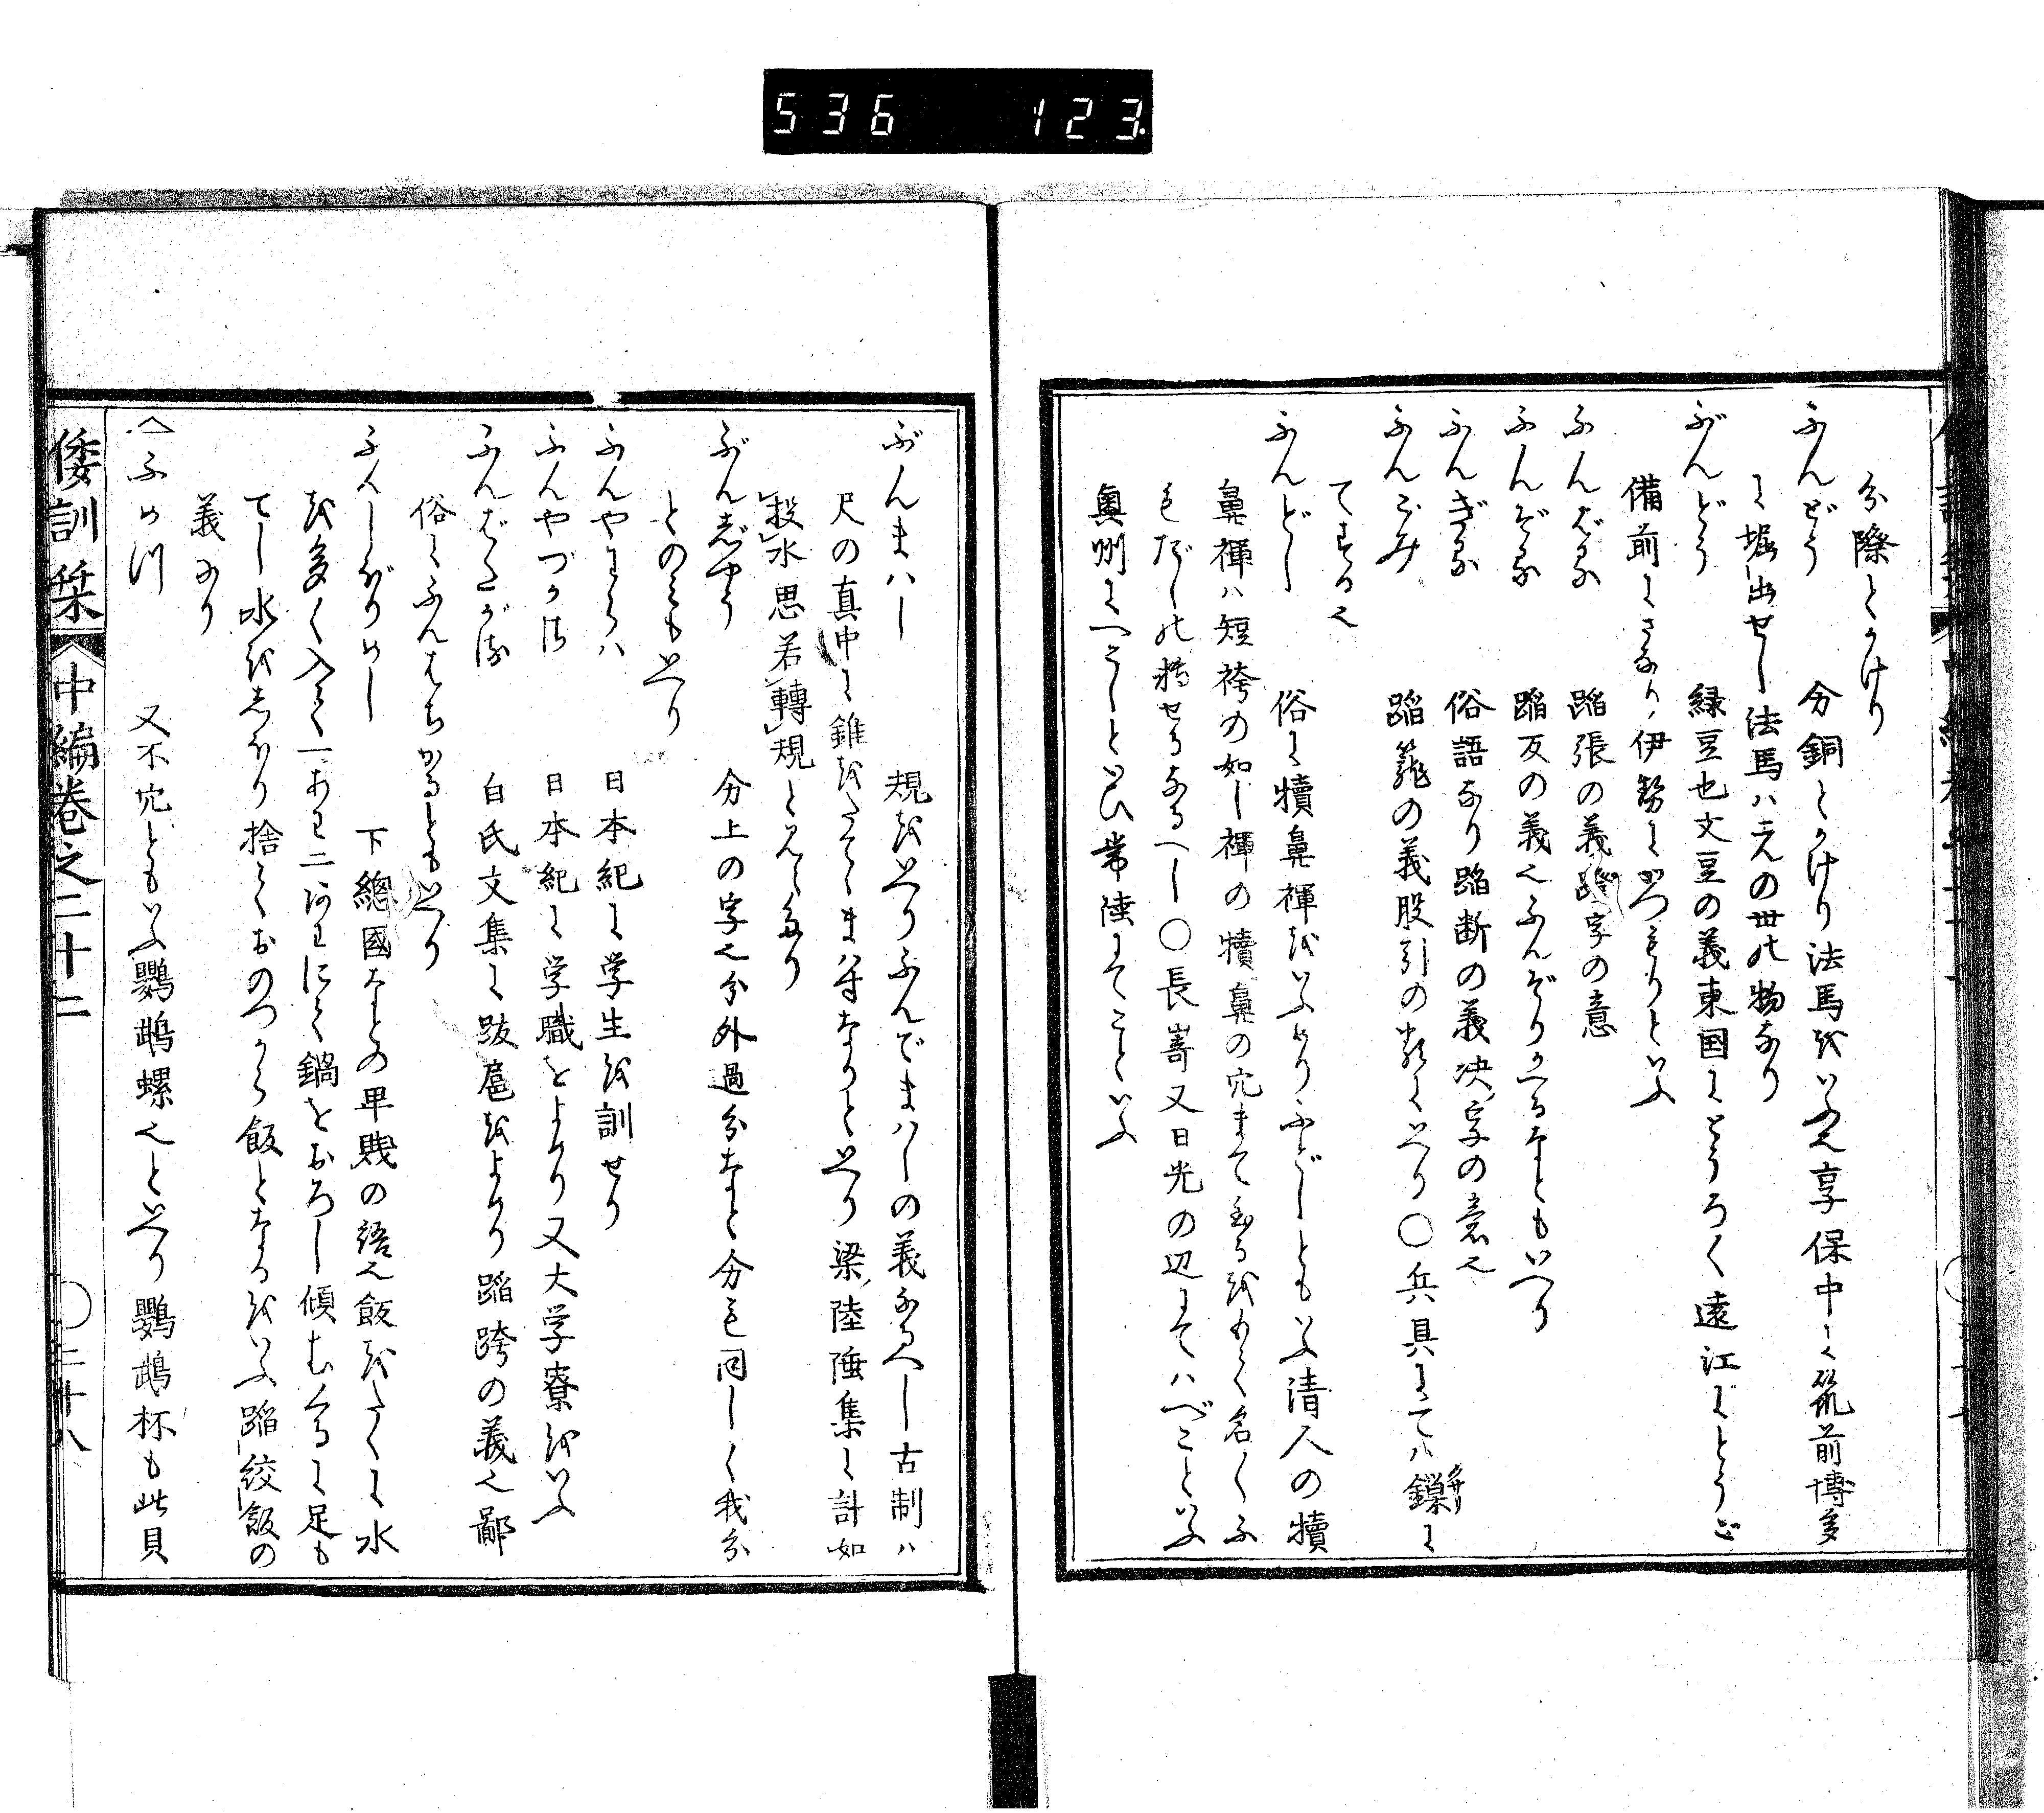 536 123
分際とかけり
ふんどう 分銅とかけり法馬をいふ也享保中に筑前博多
に堀出せし法馬ハ元の世の物なり
ぶんどう 緑豆也文豆の義東国にとうろく遠江にとうご
備前にさなり伊勢にかつもりといふ
ふんばる 蹈張の義蹬字の意
ふんぞる 蹈反の義也ふんぞりかへるなどもいへり
ふんぎる 俗語なり蹈断の義决字の意也
ふんごみ 蹈籠の義股引の類にいへり○兵具にてハ鏁クサリに
てする也
ふんどし 俗に犢鼻褌をいふめりふどしともいふ清人の犢
鼻褌ハ短袴の如し褌の犢鼻の穴まて至るをもて名くふ
もだしの転せるなるへし○長崎又日光の辺にてハべこといふ
奥州にへこしといひ常陸にてことといふ
ぶんまハし 規をいへりふんでまハしの義なるへし古制ハ
尺の真中に錐をたててまハす なりといへり梁陸倕集に計如
投水思若轉規と見えたり
ぶんじやう 分上の字也分外過分なと分も同しく我分
とのミもいへり
ふんやわらハ 日本紀に学生を訓せり
ふんやづかさ 日本紀に学職をよめり又大学寮をいふ
ふんばたかる 白氏文集に跋扈をよめり蹈跨の義也鄙
俗にふんはちかるともいへり
ふんしぼりめし 下總國なとの卑賎の語也飯をたくに水
を多く入て一あわ二あわにて鍋をおろし傾むくるに足も
てし水をしほり捨ておのつから飯となるをいふ蹈絞飯の
義なり
へふめ川 又不穴ともいふ鸚鵡螺也といへり鸚鵡杯も此貝
倭訓栞 中編巻之二十二 ○三十八